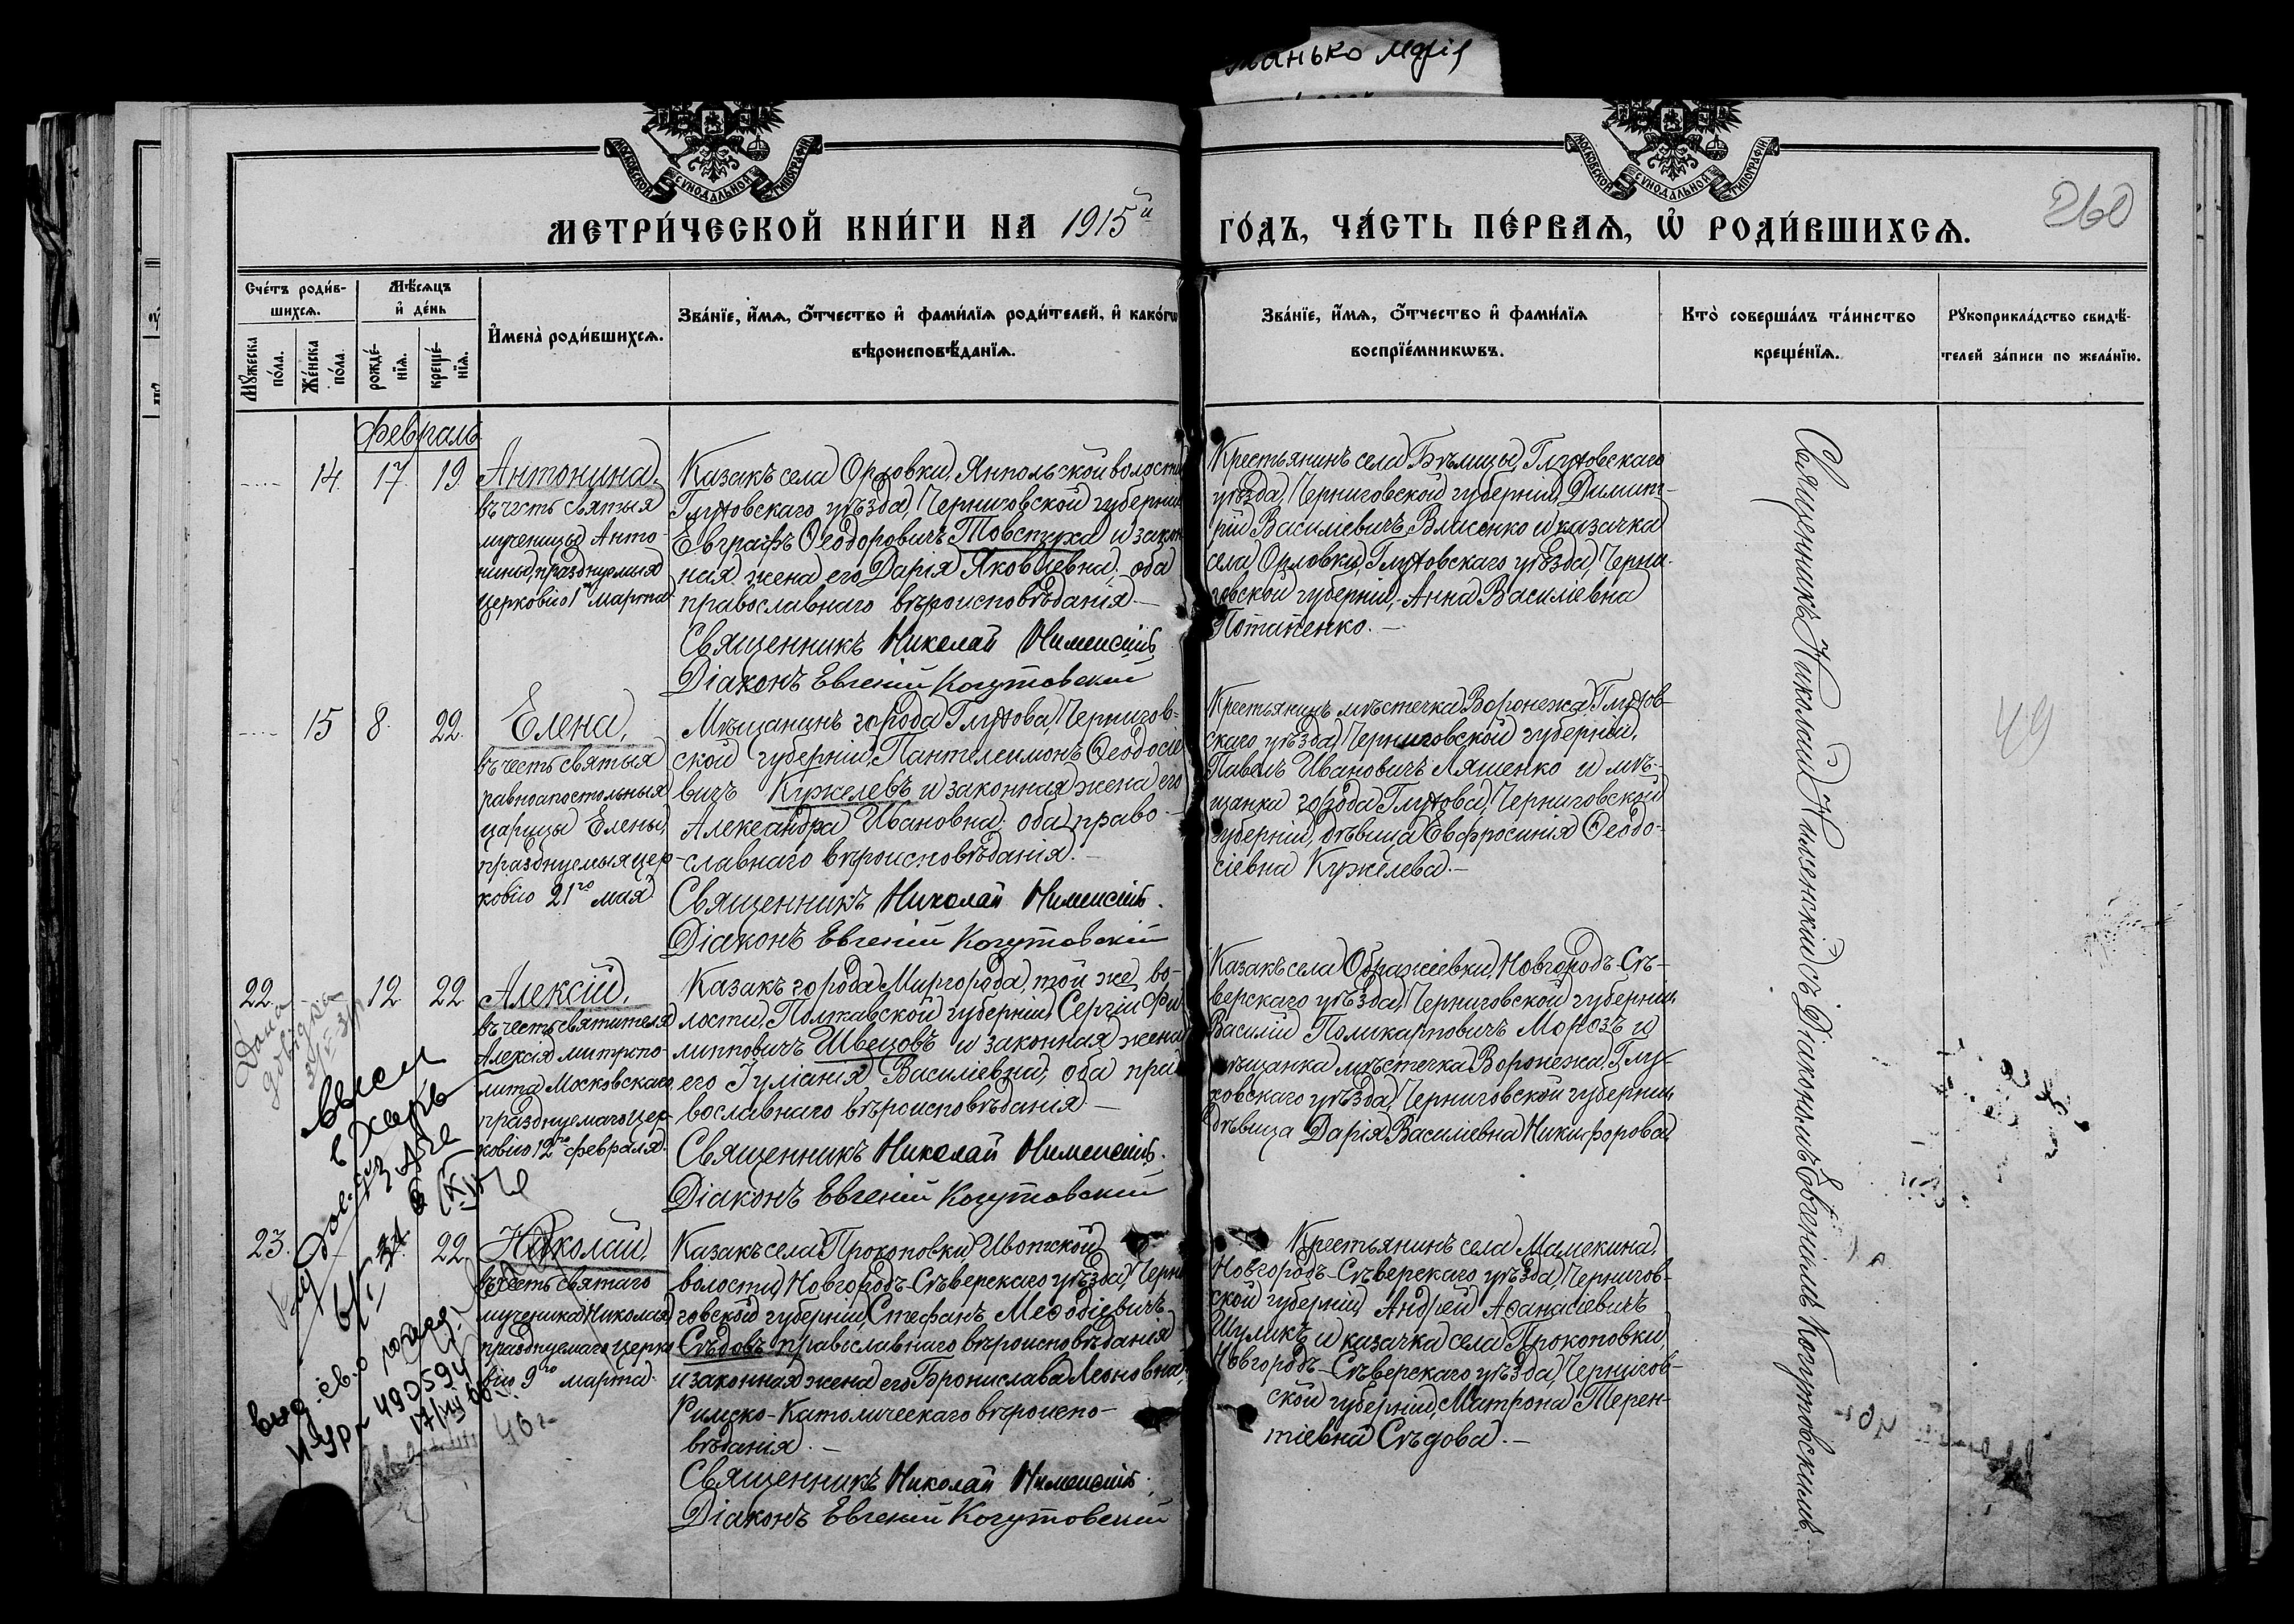 манько Марія
МОСКОВСКОЙ СѴНОДАЛЬНОЙ ТИПОГРАФІИ
МОСКОВСКОЙ СѴНОДАЛЬНОЙ ТИПОГРАФІИ
260
МЕТРИ́ЧЕСКОЙ КНИ́ГИ НА 1915й ГО́ДЪ, ЧА́СТЬ ПЕ́РВАѦ, Ѡ҆ РОДИ́ВШИХСѦ.
Сче́тъ роди́в-
шихсѧ.
Мꙋ́жеска по́ла.
Же́нска по́ла.
Мѣ́сѧцъ
и҆ де́нь
рожде́-
нїѧ.
креще́-
нїѧ.
И҆мена̀ роди́вшихсѧ.
Зва́нїе, и҆́мѧ, ѻ҆́тчество и҆ фами́лїѧ роди́телей, и҆ како́гѡ
вѣроисповѣ́данїѧ.
Зва́нїе, и҆́мѧ, ѻ҆́тчество и҆ фами́лїѧ
воспрїе́мникѡвъ.
Кто̀ соверша́лъ та́инство
креще́нїѧ.
Рꙋкоприкла́дство свидѣ́-
телей за́писи по жела́нїю.
Февраль
14. 17. 19.
Антонина,
въ честь святыя
мученицы Анто-
нины, празднуемыя
церковію 1го марта.
Казакъ села Орловки, Янпольской волости
Глуховскаго уѣзда, Черниговской губерніи
Евграфъ Ѳеодоровичъ Товстуха и закон
ная жена его Дарія Яковлевна, оба
православнаго вѣроисповѣданія.—
Священникъ Николай Нименскій
Діаконъ Евгеній Когутовскій
Крестьянинъ села Бѣлицы, Глуховскаго
уѣзда, Черниговской губерніи, Димит-
рій Василіевичъ Власенко и казачка
села Орловки, Глуховскаго уѣзда, Черни-
говской губерніи, Анна Василіевна
Потапенко.—
15 8. 22.
Елена,
въ честь святыя
равноапостольныя
царицы Елены,
празднуемыя цер-
ковію 21го мая.
Мѣщанинъ города Глухова, Чернигов-
ской губерніи, Пантелеимонъ Ѳеодосіе
вичъ Кужелевъ и законная жена его
Александра Ивановна, оба право-
славнаго вѣроисповѣданія.—
Священникъ Николай Нименскій.
Діаконъ Евгеній Когутовскій
Крестьянинъ мѣстечка Воронежа, Глухов-
скаго уѣзда, Черниговской губерніи,
Павелъ Ивановичъ Ляшенко и мѣ-
щанка города Глухова, Черниговской
губерніи, дѣвица Евфросинія Ѳеодо-
сіевна Кужелева.—
49
22. 12 22
Алексій,
въ честь святителя
Алексія митропо
лита Московскаго,
празднуемаго цер-
ковію 12го февраля.
Казакъ города Миргорода, той же во-
лости, Полтавской губерніи, Сергій Фи
липповичъ Швецовъ и законная жена
его Іуліанія Василіевна, оба пра
вославнаго вѣроисповѣданія —
Священникъ Николай Нименскій.
Діаконъ Евгеній Когутовскій
Казакъ села Ображіевки, Новгородъ-Сѣ-
верскаго уѣзда, Черниговской губерніи,
Василій Поликарповичъ Морозъ и
мѣщанка мѣстечка Воронежа, Глу-
ховскаго уѣзда, Черниговской губерніи,
дѣвица Дарія Василіевна Никифорова.
Дана
довідка
23. 22
Николай,
въ честь святаго
мученика Николая,
празднуемаго церко
вію 9го марта.
Казакъ села Прокоповки, Ивотской
волости, Новгородъ-Сѣверскаго уѣзда, Черни
говской губерніи, Стефанъ Меѳодіевичъ
Сѣдовъ православнаго вѣроисповѣданія
и законная жена его Бронислава Леоновна
Римско-Католическаго вѣроиспо-
вѣданія.—
Священникъ Николай Нименскій.
Діаконъ Евгеній Когутовскій
Крестьянинъ села Мамекина,
Новгородъ-Сѣверскаго уѣзда, Чернигов-
ской губерніи, Андрей Аѳанасіевичъ
Шуликъ и казачка села Прокоповки,
Новгородъ-Сѣверскаго уѣзда, Чернигов-
ской губерніи, Матрона Терен-
тіевна Сѣдова.—
выд. св.о рожд.
490594
17/VII 66
46 г.
Священникъ Николай Нименскій съ Діакономъ Евгеніемъ Когутовскимъ